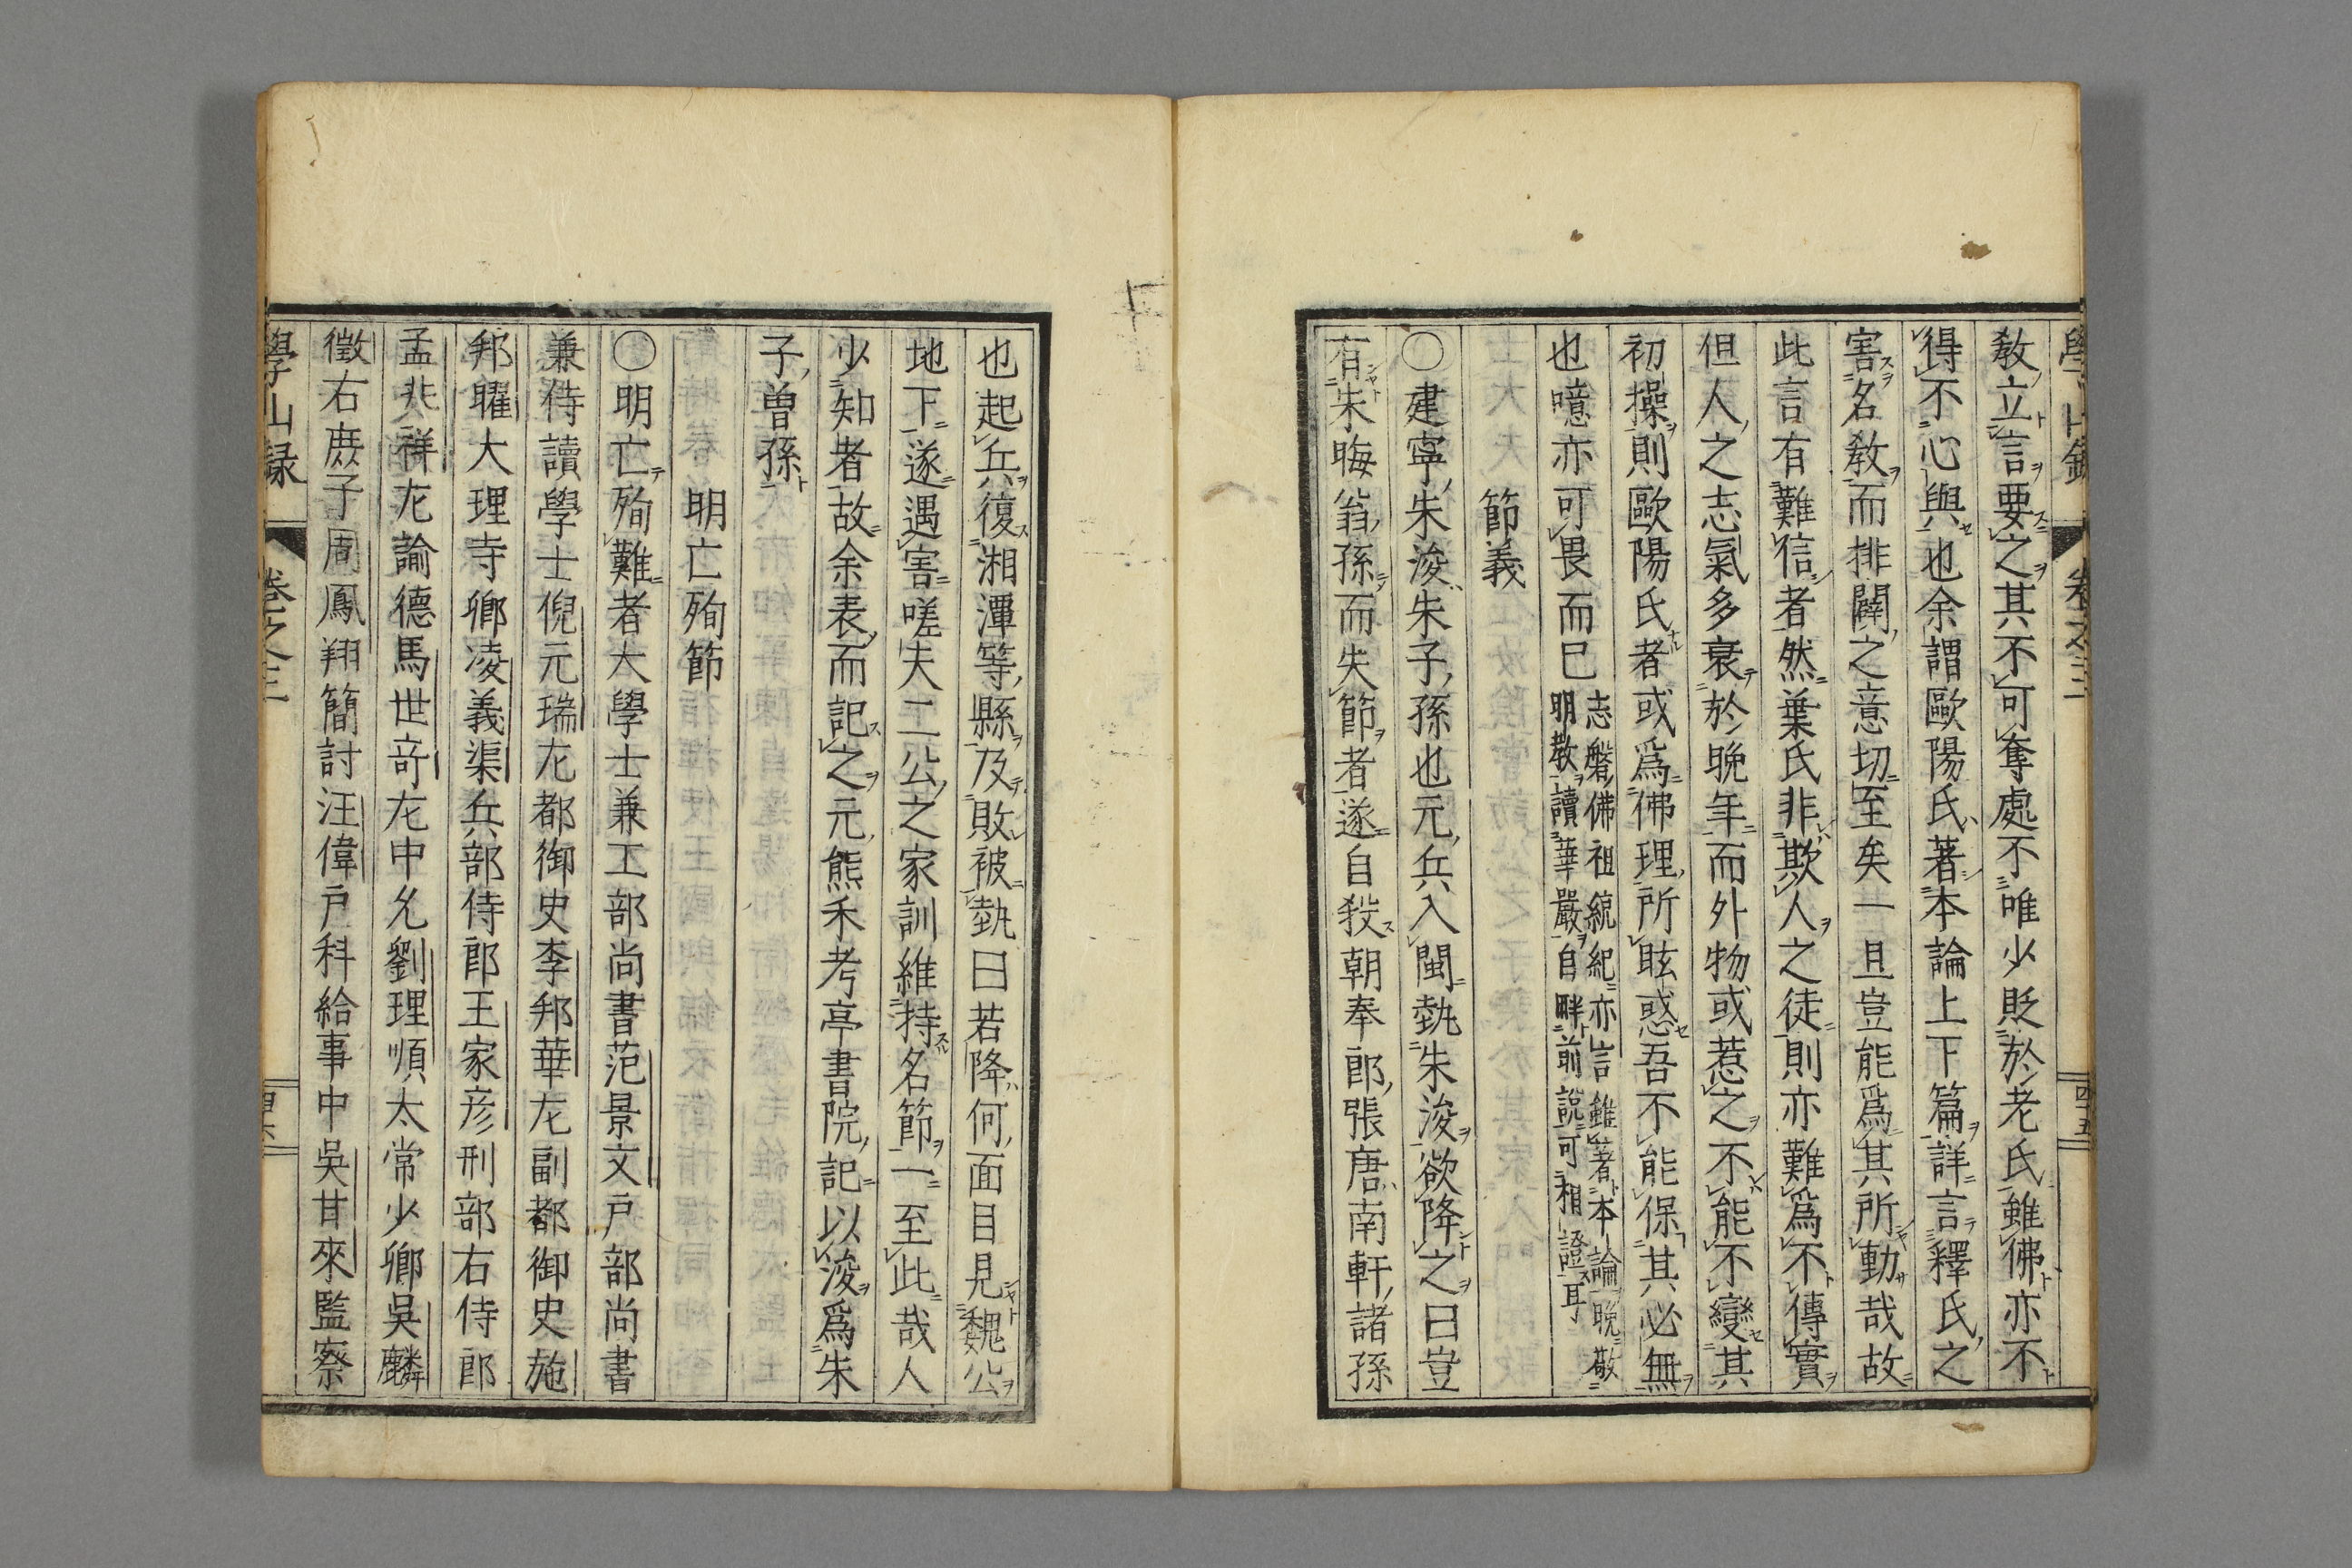 學山錄 卷之三 四十五
敎立言要之其不可奪處不唯少貶於老氏雖佛亦不
得不心與也余謂歐陽氏著本論上下篇詳言釋氏之
害名敎而排闢之意切至矣一旦豈能爲其所動哉故
此言有難信者然葉氏非欺人之徒則亦難爲不傳實
但人之志氣多衰於晩年而外物或惹之不能不變其
初操則歐陽氏者或爲佛理所眩惑吾不能保其必無
也噫亦可畏而已
志磐佛祖統紀亦言雖著本論晩敬
明敎讀華嚴自畔前說可相證耳
節義
〇建寧朱浚朱子孫也元兵入閩執朱浚欲降之曰豈
有朱晦翁孫而失節者遂自殺朝奉郎張唐南軒諸孫
也起兵復湘潭等縣及敗被執曰若降何面目見魏公
地下遂遇害嗟夫二公之家訓維持名節一至此哉人
少知者故余表而記之元熊禾考亭書院記以浚爲朱
子曽孫
明亡殉節
〇明亡殉難者大學士兼工部尚書范景文戶部尚書
兼侍讀學士倪元瑞左都御史李邦華左副都御史施
邦曜大理寺卿凌義渠兵部侍郎王家彥刑部右侍郎
孟兆祥左諭德馬世奇左中允劉理順太常少卿吳麟
徵右庶子周鳳翔簡討汪偉戶科給事中吳甘來監察
學山錄 卷之三 四十六